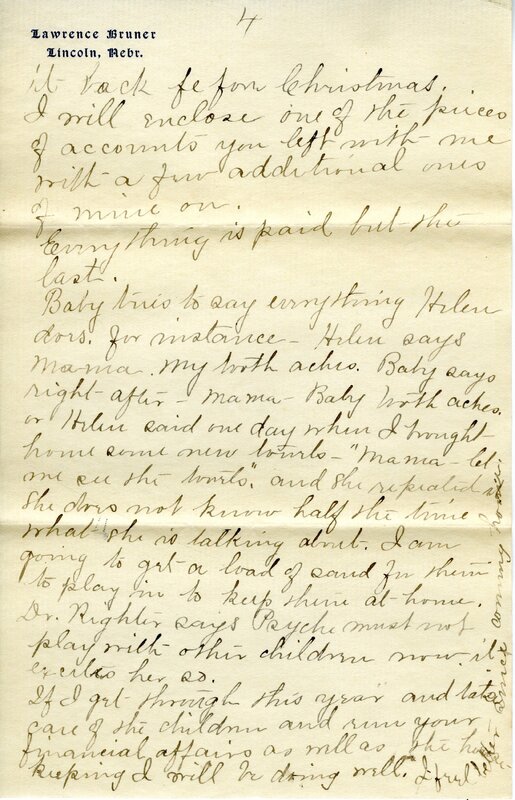 4
Lawrence Bruner
Lincoln, Nebr.
it back before Christmas.
I will enclose one of the pieces
of accounts you left with me
with a few additional ones
of mine on.
Everything is paid but the
last.
Baby tries to say everything Helen
does. for instance - Helen says
Mama. My tooth aches. Baby says
right after - Mama - Baby tooth aches.
or Helen said one day when I brought
home some new towels - "Mama - let
me see the towels". and she repeated it
She does not know half the time
what she is talking about. I am
going to get a load of sand for them
to play in to keep them at home.
Dr. Righter says Psyche must not
play with other children now. it
excites her so.
If I get through this year and take
care of the children and run your
financial affairs as well as the house
keeping I will be doing well." I feel
better since coming home.